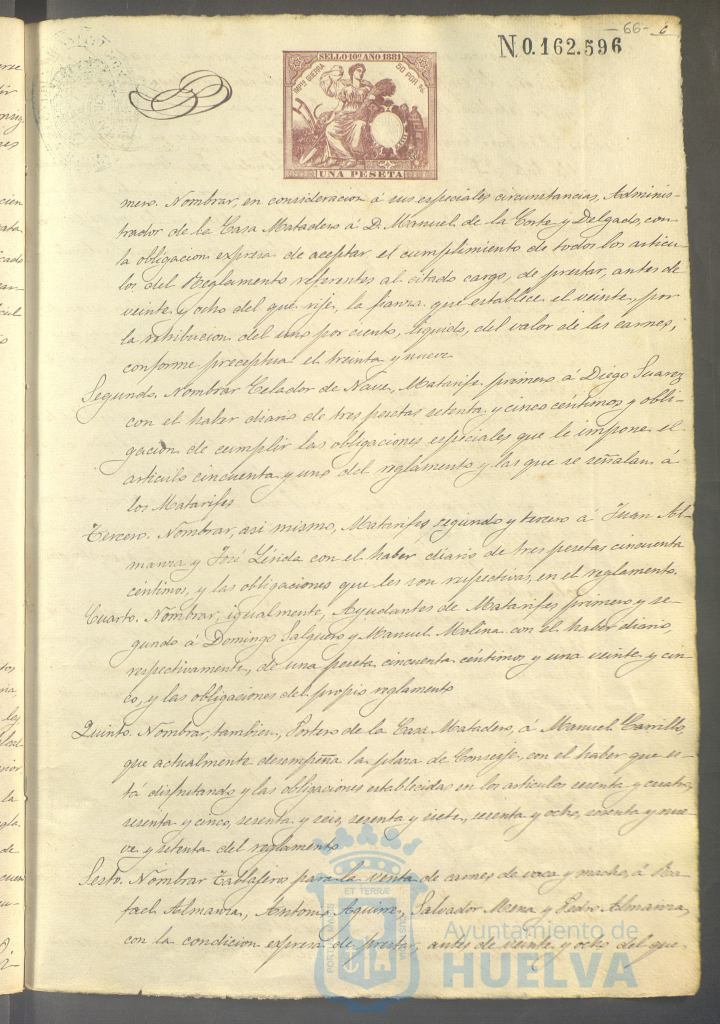 -66- 6
N.0.162.596
SELLO 10º AÑO 1881
IMPTO GUERRA 50 POR %
UNA PESETA
mero. Nombrar, en consideracion á sus especiales circunstancias, Adminis-
trador de la Casa Matadero á D. Manuel de la Corte y Delgado, con
la obligacion expresa de aceptar el cumplimiento de todos los articu-
los del Reglamento referentes al citado cargo, de prestar, antes de
veinte y ocho del que rije, la fianza que establece el veinte, por
la retribucion del uno por ciento, liquido, del valor de las carnes,
conforme preceptua el treinta y nueve
Segundo. Nombrar Celador de Nave, Matarife primero á Diego Suarez
con el haber diario de tres pesetas setenta y cinco céntimos y obli-
gacion de cumplir las obligaciones especiales que le impone el
articulo cincuenta y uno del reglamento y las que se señalan á
los Matarifes
Tercero. Nombrar, asi mismo, Matarifes, segundo y tercero á Juan Al-
manza y José Lérida con el haber diario de tres pesetas cincuenta
céntimos, y las obligaciones que les son respectivas, en el reglamento.
Cuarto. Nombrar, igualmente, Ayudantes de Matarifes primero y se-
gundo á Domingo Salguero y Manuel Molina con el haber diario
respectivamente, de una peseta cincuenta céntimos y una veinte y cin-
co, y las obligaciones del propio reglamento
Quinto. Nombrar, tambien, Portero de la Casa Matadero, á Manuel Carrillo,
que actualmente desempeña la plaza de Conserje, con el haber que es-
tá disfrutando y las obligaciones establecidas en los articulos sesenta y cuatro,
sesenta y cinco, sesenta y seis, sesenta y siete, sesenta y ocho, sesenta y nue-
ve y setenta del reglamento
Sesto. Nombrar Tablajeros para la venta de carnes de vaca y macho, á Ra-
fael Almanza, Antonio Aguirre, Salvador Mena y Pedro Almanza,
con la condicion expresa de prestar, antes de veinte y ocho del que
PORTUS MARIS ET TERRÆ CUSTODIA
Ayuntamiento de
HUELVA